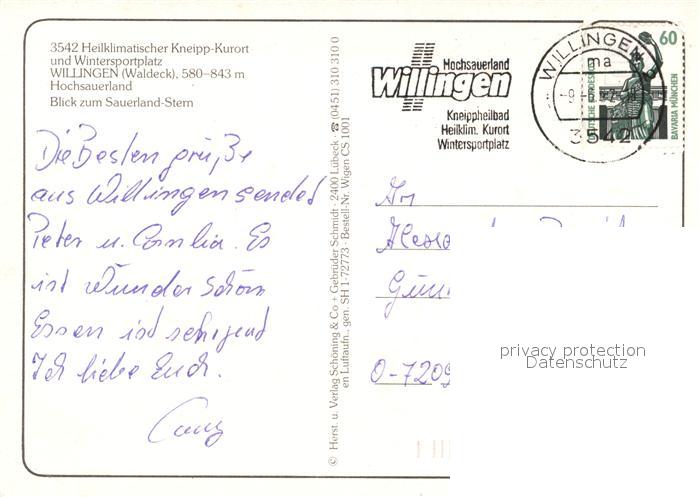 3542 Heilklimatischer Kneipp-Kurort
und Wintersportplatz
WILLINGEN (Waldeck), 580–843 m
Hochsauerland
Blick zum Sauerland-Stern
Die Besten grüße
aus Willingen sendet
Peter u. Cornelia. Es
ist Wunder schön
Essen ist
Ich liebe Euch.
© Herst. u. Verlag Schöning & Co + Gebrüder Schmidt · 2400 Lübeck ☎ (0451) 310 310 0
en Luftaufn., gen. SH 1-72773 · Bestell-Nr. Wigen CS 1001
Hochsauerland
Willingen
Kneippheilbad
Heilklim. Kurort
Wintersportplatz
WILLINGEN
ma
3542
60
DEUTSCHE BUNDESPOST
BAVARIA MÜNCHEN
An
O-7209
privacy protection
Datenschutz